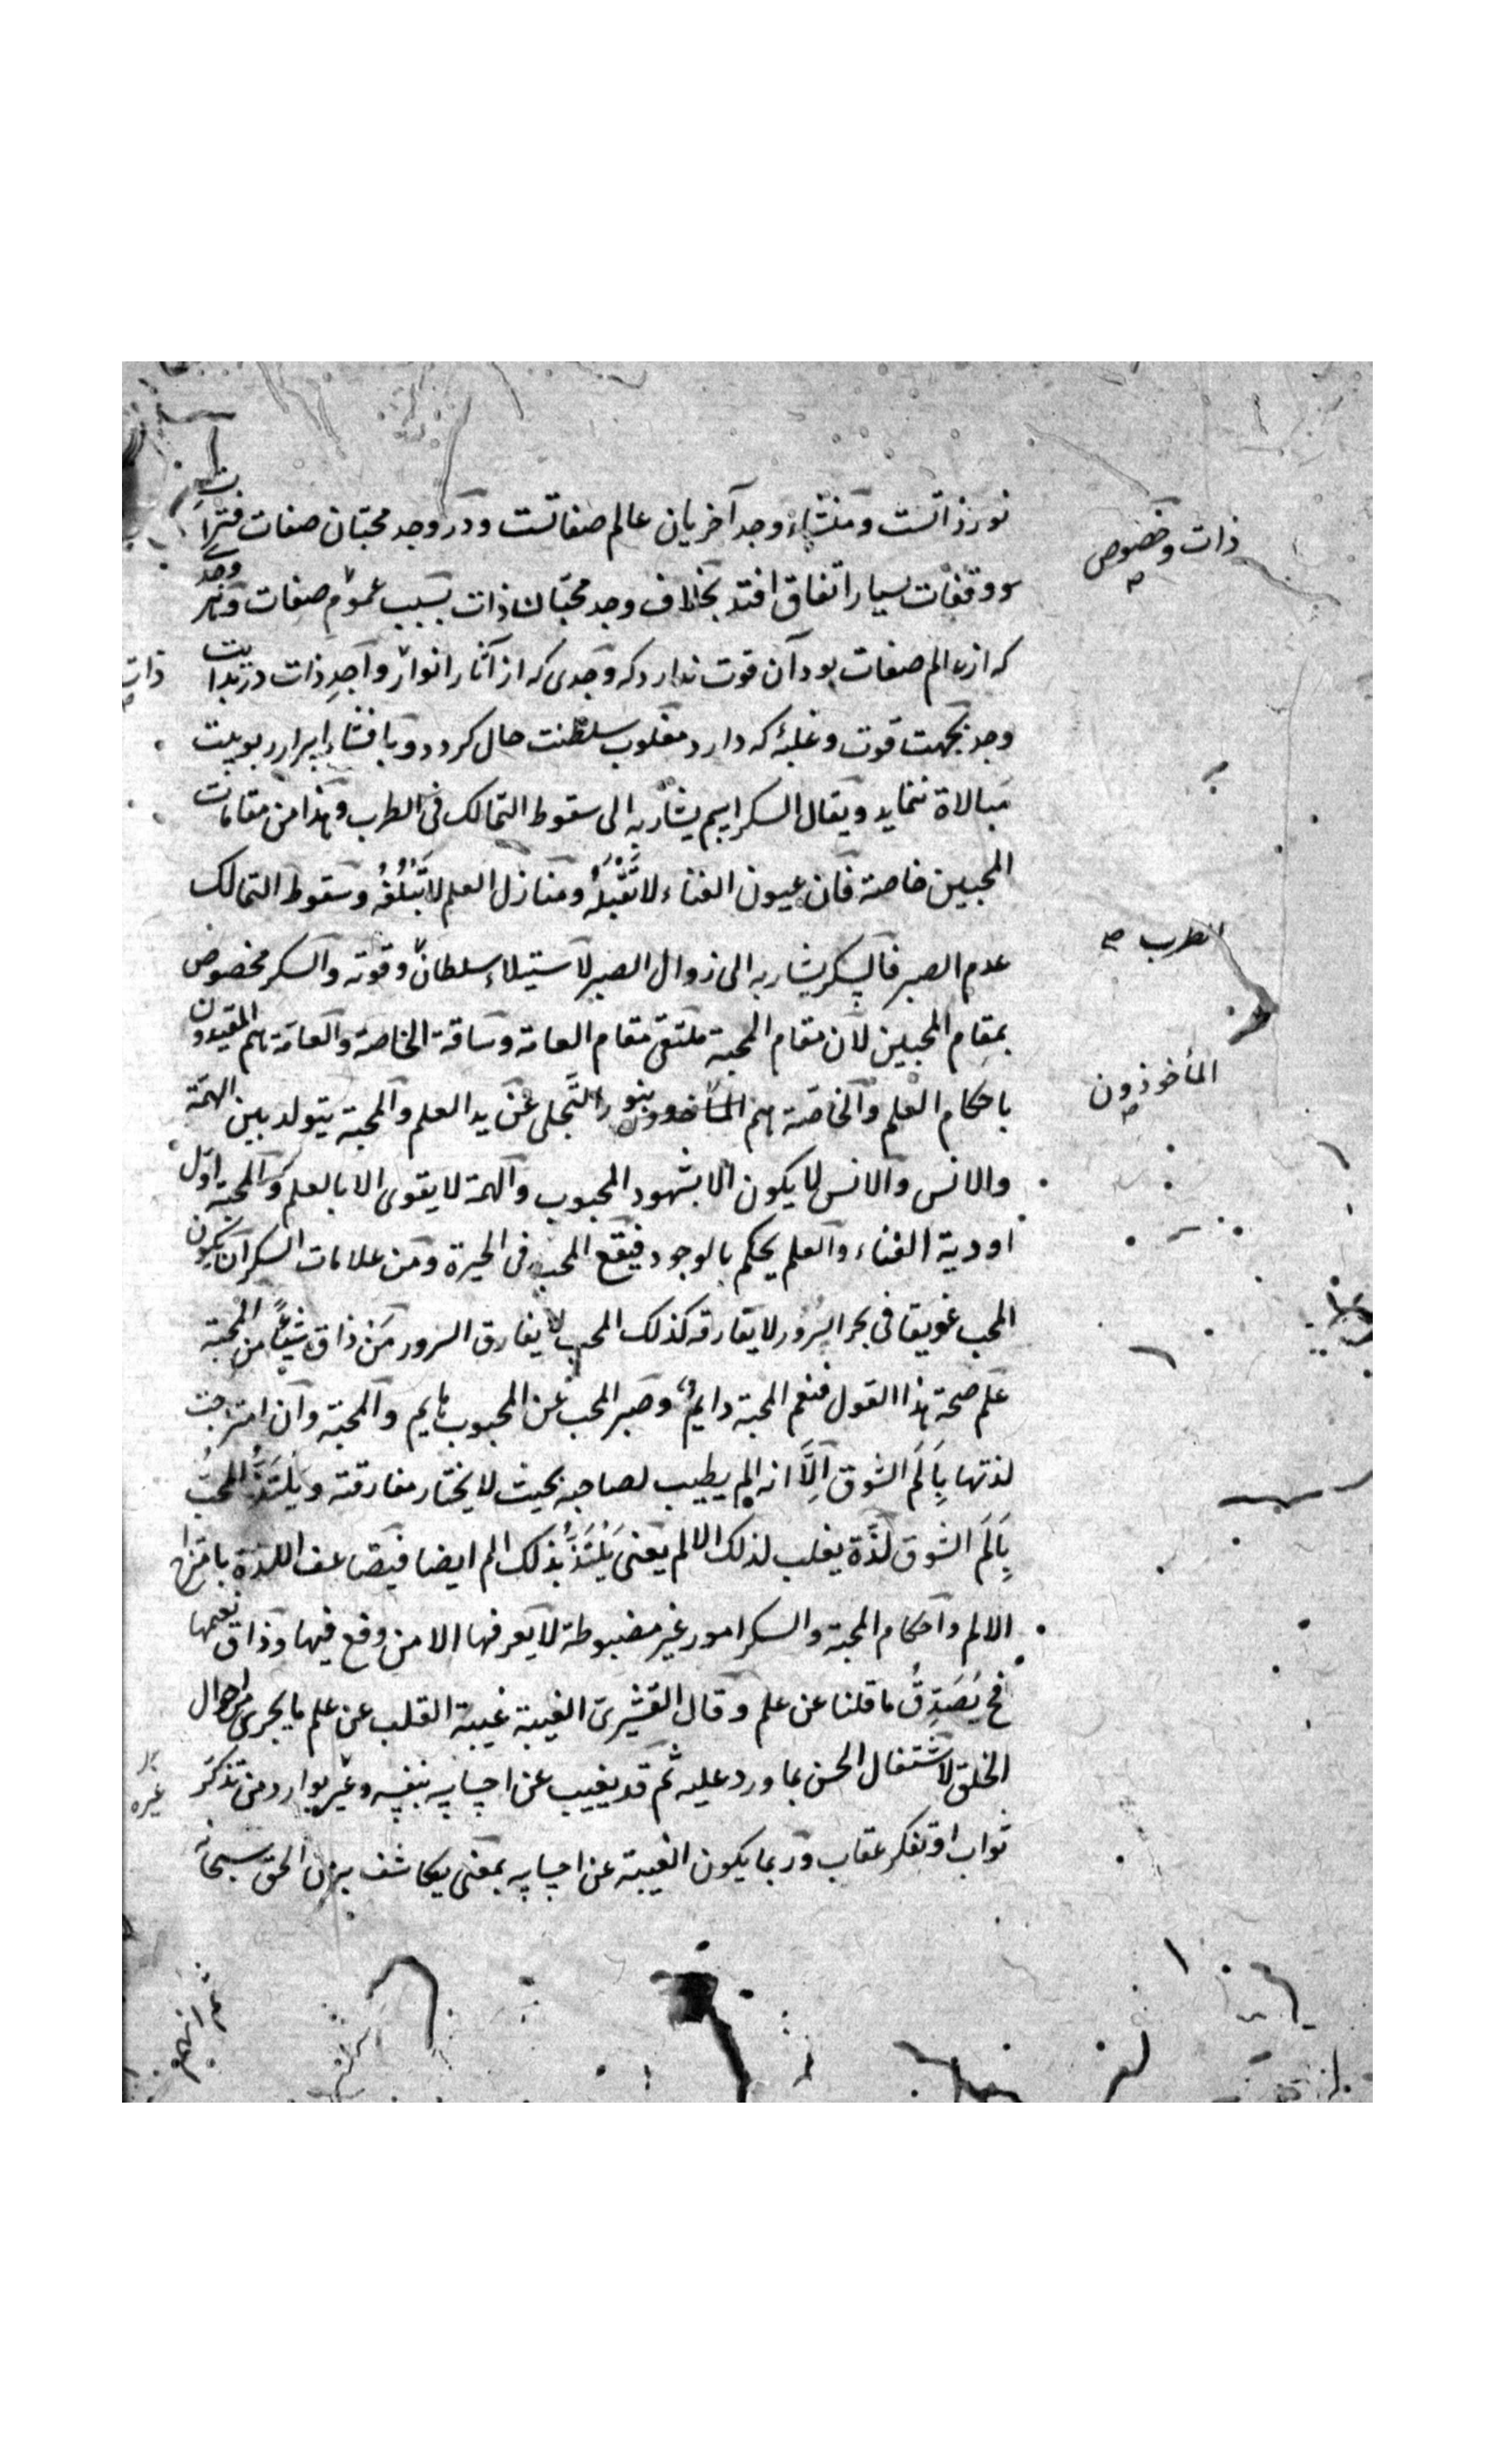 نور ذاتست ومنشاء وجد آخریان عالم صفاتست ودر وجد محبّان صفات فترات
ووقفات بسیار اتفاق افتد بخلاف وجد محبّان ذات بسبب عموم صفات وجدی
ذات وخصوص
که از عالم صفات بود آن قوت ندارد که وجدی که از آثار انوار واجد ذات در بدایت
ذات
وجد بجهت قوت وغلبۀ که دارد مغلوب سلطنت حال کردد وبافشاء اسرار ربوبیت
مبالاة ننماید ویقال السکر اسم یشار به الی سقوط التمالک فی الطرب وهذا من مقامات
المحبین خاصة فان عیون الفناء لا تَقْبَلُه ومنازل العلم لا تَبْلُغُه وسقوط التمالک
الطرب صح
عدم الصبر فالسکر یشار به الی زوال الصبر لاستیلاء سلطان وقوته والسکر مخصوص
بمقام المحبین لان مقام المحبة ملتقی مقام العامة وساقة الخاصة والعامة هم المقیدون
المأخوذون
باحکام العلم والخاصة هم بنور التَّجلی عن ید العلم والمحبة یتولد بین الهمّة
والانس والانس لا یکون الا بشهود المحبوب والهمة لا یقوی الا بالعلم والمحبة اوّل
اودیة الفناء والعلم یحکم بالوجود فیقع المحب فی الحیرة ومن علامات السکر ان یکون
المحب غریقا فی بحر السرور لا یفارقه کذلک المحب لا یفارق السرور مَنْ ذاق شیئاً من المحبة
علم صحة هذا القول فنعم المحبة دایم وصبر المحب عن المحبوب هایم والمحبة وان امتزجت
لذتها بِاَلَم الشوق اِلَّا انه الم یطیب لصاحبه بحیث لا یختار مفارقته ویَلْتَذُّ المحبُّ
بِاَلَم الشوق لذَّة یغلب لذلک الالم یعنی یَلْتَذُّ بذلک الم ایضا فیتضاعف اللذة بامتزاج
الالم واحکام المحبة والسکر امور غیر مضبوطة لا یعرفها الا من وقع فیها وذاق نعیمها
فح یُصَدِّقُ ما قلنا عن علم وقال القشیری الغیبة غیبة القلب عن علم ما یجری من احوال
الخلق لاشتغال الحس بما ورد علیه ثم قد یغیب عن احساسه بنفسه وغیره بوارد من تذکر
غیره
ثواب او تفکر عقاب وربما یکون الغیبة عن احساسه بمعنی یکاشف به من الحق سبحانه